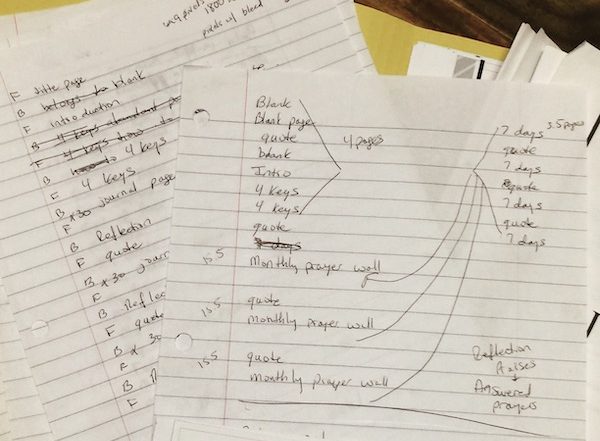 pixels w/ bleed
F title page
B belongs to blank
F introduction
B 4 keys
F 4 keys how to
B 4 keys
F 4 keys
B x30 journal page
F
B Reflection
F quote
B x30 jour
F
B Reflec
F quote
B x 30
F
B
F
Blank
Blank page
quote
blank
Intro
4 keys
4 keys
quote
days
Monthly prayer wall
quote
monthly prayer wall
quote
monthly prayer wall
4 pages
3.5 pages
7 days
quote
7 days
quote
7 days
quote
7 days
Reflection
Praises
Answered
prayers